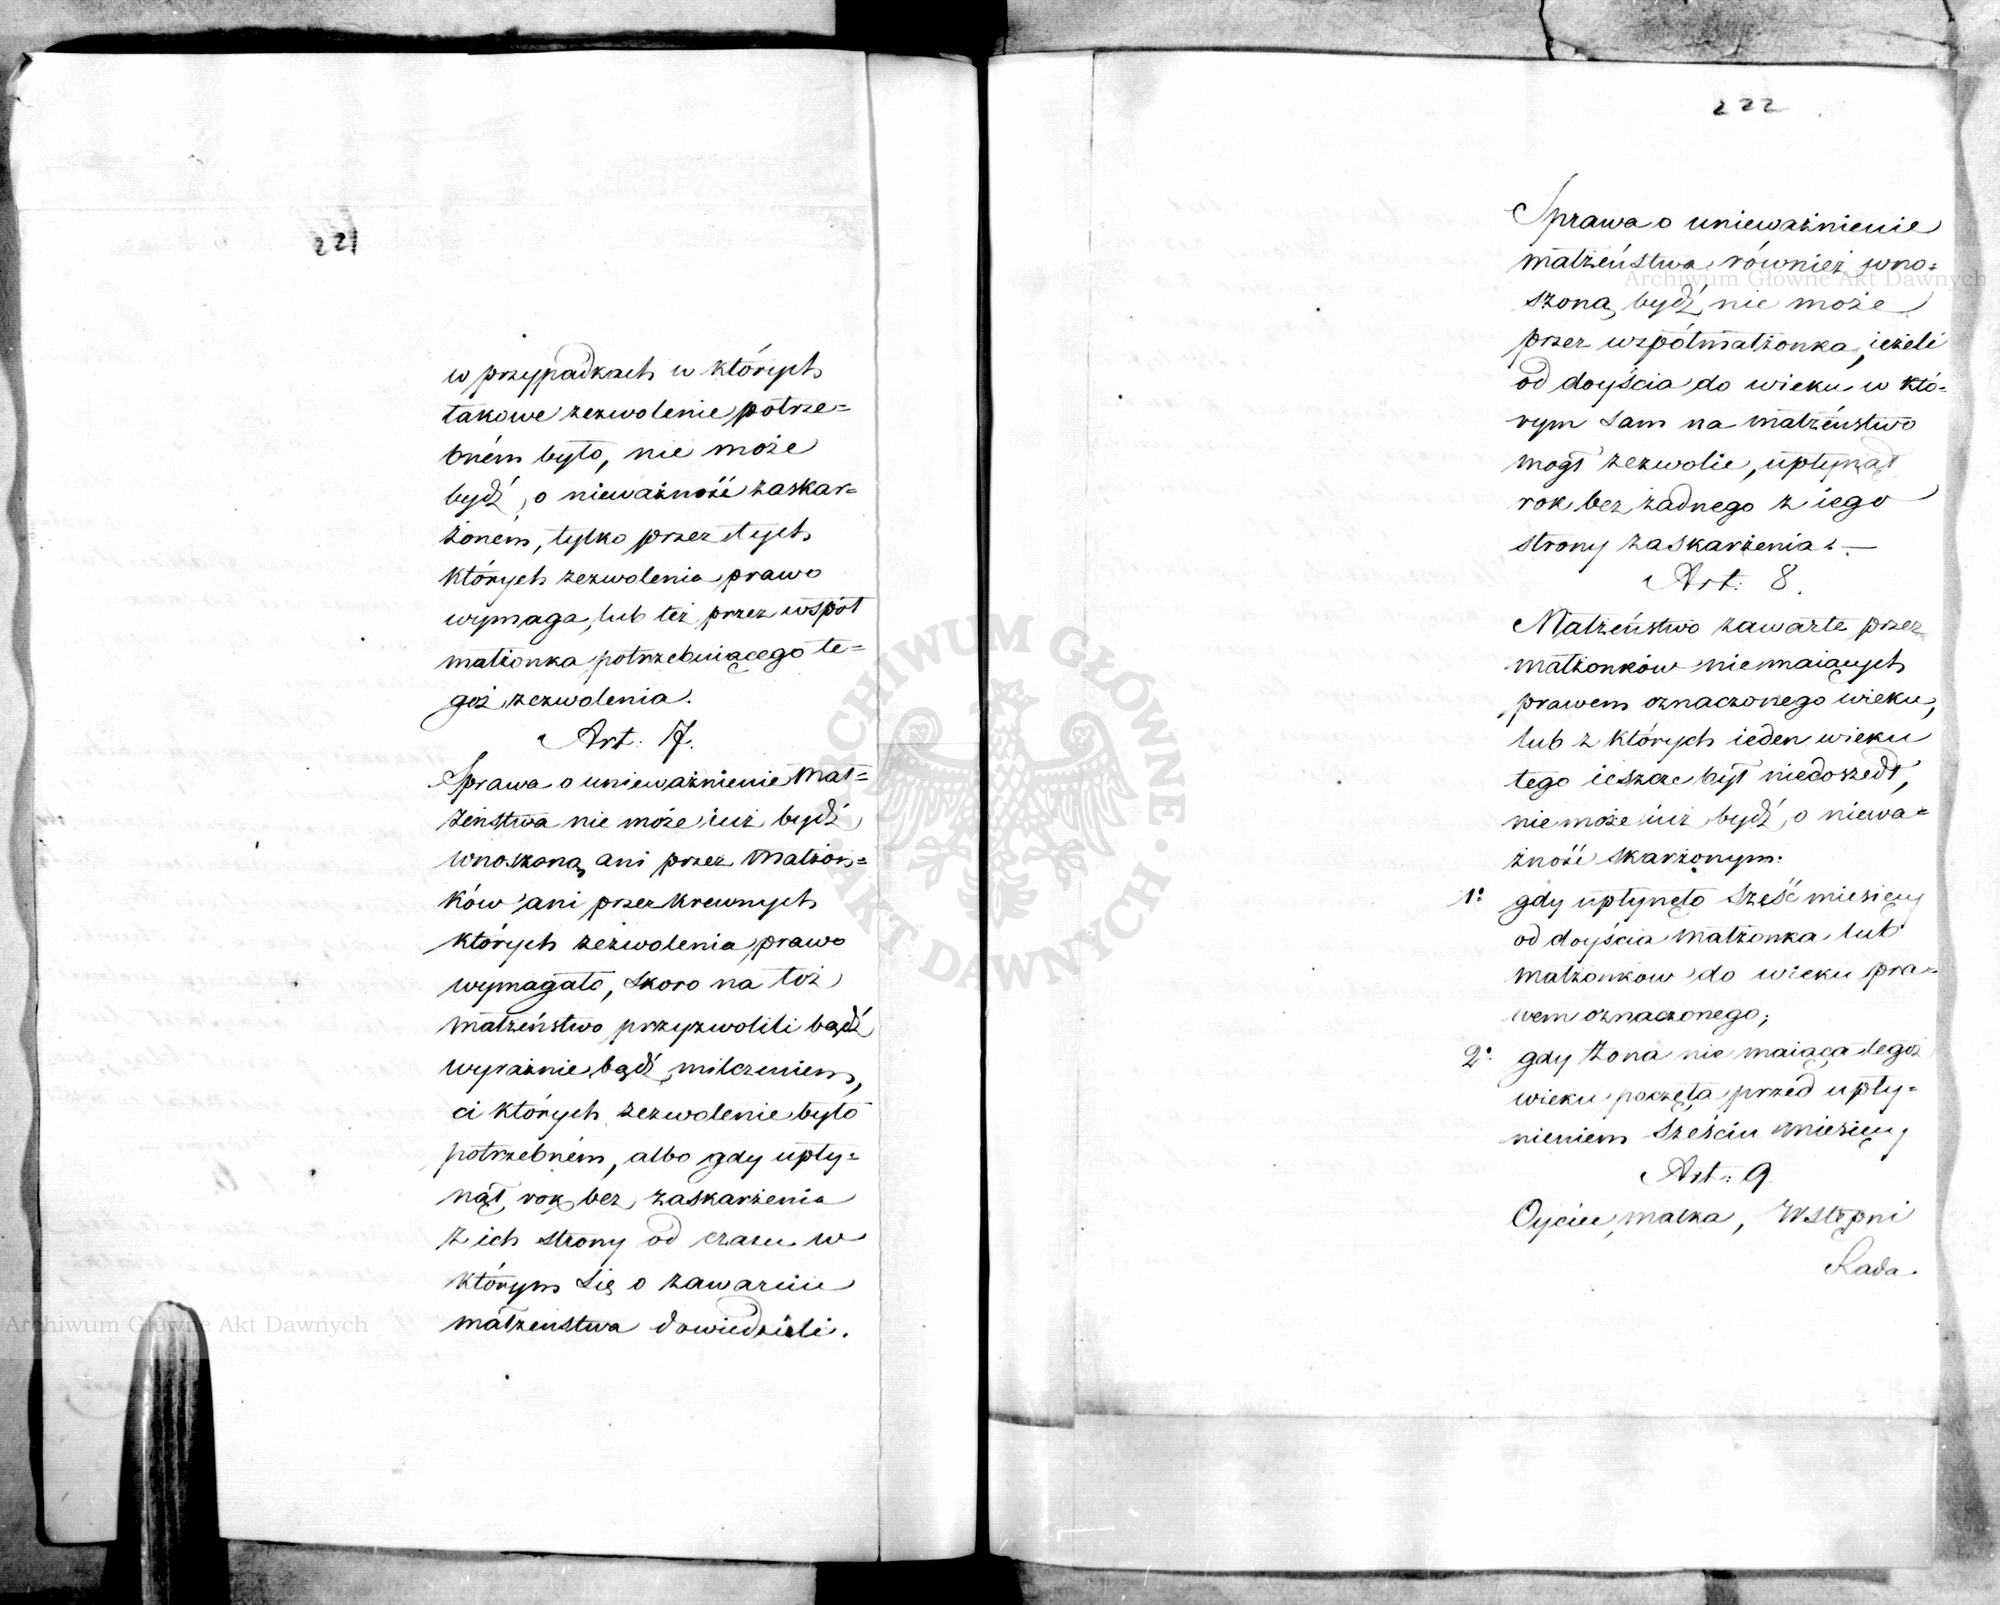 221
w przypadkach w których
takowe zezwolenie potrze=
bném było, nie może
bydź o nieważność zaskar=
żoném, tylko przez tych
których zezwolenia prawo
wymaga, lub też przez współ
małżonka potrzebuiącego te=
goż zezwolenia.
Art: 7.
Sprawa o unieważnienie Mał=
żeństwa nie może iuż bydź
wnoszoną ani przez Małżon=
ków ani przez krewnych
których zezwolenia prawo
wymagało, skoro na toż
małżeństwo przyzwolili bądź
wyraźnie bądź milczeniem,
ci których zezwolenie było
potrzebném, albo gdy upły=
nął rok bez zaskarżenia
z ich strony od czasu w
którym się o zawarciu
małżeństwa dowiedzieli.
222
Sprawa o unieważnienie
małżeństwa również wno=
szoną bydź nie może
przez współmałżonka, ieżeli
od doyścia do wieku w któ=
rym sam na małżeństwo
mógł zezwolić, upłynął
rok bez żadnego z iego
strony zaskarżenia. —
Art: 8.
Małżeństwo zawarte przez
małżonków niemaiących
prawem oznaczonego wieku,
lub z których ieden wieku
tego ieszcze był niedoszedł,
nie może iuż bydź o niewa=
żność skarżonym:
1° gdy upłynęło sześć miesięcy
od doyścia małżonka lub
małżonków do wieku pra=
wem oznaczonego;
2° gdy żona nie maiąca tegoż
wieku poczęła przed upły=
nieniem sześciu miesięcy
Art: 9.
Oyciec, matka, Wstępni
Rada.
Archiwum Główne Akt Dawnych
Archiwum Główne Akt Dawnych
ARCHIWUM GŁÓWNE AKT DAWNYCH